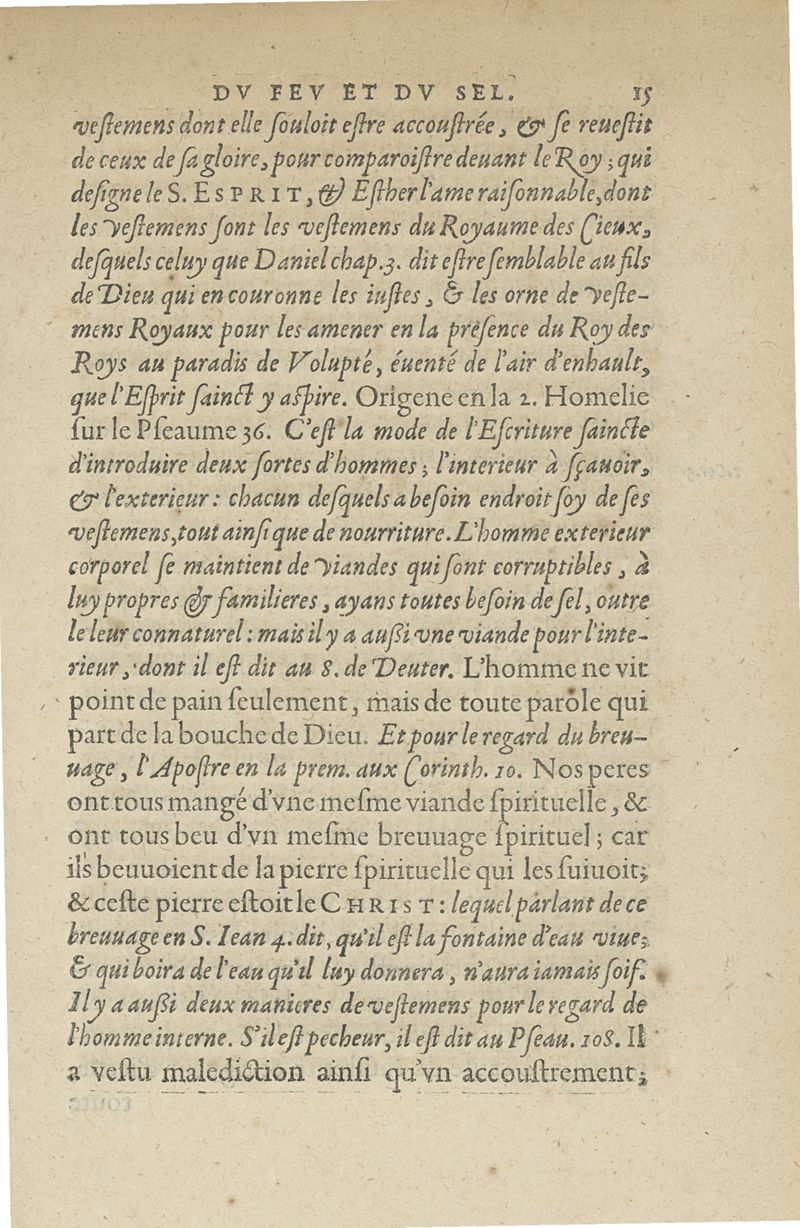 DV FEV ET DV SEL. 15
veſtemens dont elle ſouloit eſtre accouſtrée, & ſe reueſtit
de ceux de ſa gloire, pour comparoiſtre deuant le Roy; qui
deſigne le S. ESPRIT, & Eſther l'ame raiſonnable, dont
les veſtemens ſont les veſtemens du Royaume des Cieux,
deſquels celuy que Daniel chap. 3. dit eſtre ſemblable au fils
de Dieu qui en couronne les iuſtes, & les orne de veſte-
mens Royaux pour les amener en la preſence du Roy des
Roys au paradis de Volupté, éuenté de l'air d'enhault,
que l'Eſprit ſainct y aſpire. Origene en la 2. Homelie
ſur le Pſeaume 36. C'eſt la mode de l'Eſcriture ſaincte
d'introduire deux ſortes d'hommes; l'interieur à ſçauoir,
& l'exterieur: chacun deſquels a beſoin endroit ſoy de ſes
veſtemens, tout ainſi que de nourriture. L'homme exterieur
corporel ſe maintient de viandes qui ſont corruptibles, à
luy propres & familieres, ayans toutes beſoin de ſel, outre
le leur connaturel: mais il y a auſſi vne viande pour l'inte-
rieur, dont il eſt dit au 8. de Deuter. L'homme ne vit
point de pain ſeulement, mais de toute parole qui
part de la bouche de Dieu. Et pour le regard du breu-
uage, l'Apoſtre en la prem. aux Corinth. 10. Nos peres
ont tous mangé d'vne meſme viande ſpirituelle, &
ont tous beu d'vn meſme breuuage ſpirituel; car
ils beuuoient de la pierre ſpirituelle qui les ſuiuoit;
& ceſte pierre eſtoit le CHRIST: lequel parlant de ce
breuuage en S. Iean 4. dit, qu'il eſt la fontaine d'eau viue;
& qui boira de l'eau qu'il luy donnera, n'aura iamais ſoif.
Il y a auſſi deux manieres de veſtemens pour le regard de
l'homme interne. S'il eſt pecheur, il eſt dit au Pſeau. 108. Il
a veſtu malediction ainſi qu'vn accouſtrement;